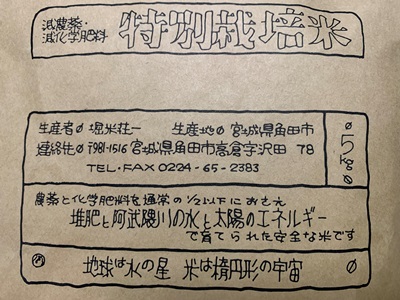 減農薬・
減化学肥料
特別栽培米
生産者 堀米荘一 生産地 宮城県角田市
連絡先 〒981-1516 宮城県角田市高倉字沢田 78
TEL・FAX 0224-65-2383
5kg
農薬と化学肥料を通常の1/2以下におさえ
堆肥と阿武隈川の水と太陽のエネルギー
で育てられた安全な米です
地球は水の星 米は楕円形の宇宙